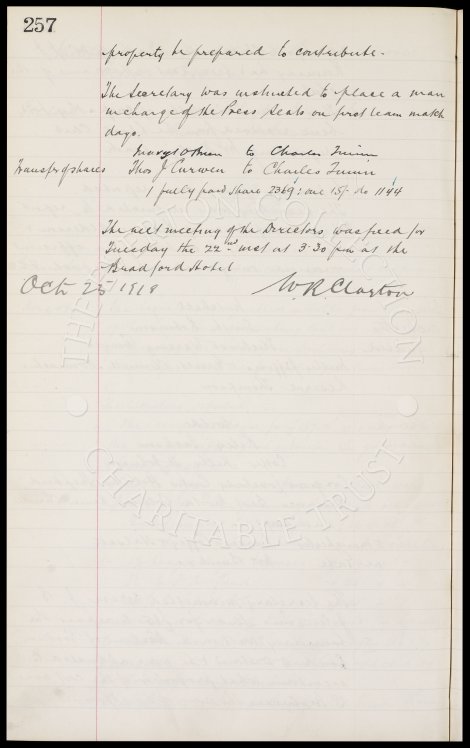 257
property be prepared to contribute.
The Secretary was instructed to place a man
in charge of the Press Seats on first team match
days.
to Charles Quinn
Transfer of shares Thos J Curwen to Charles Quinn
1 fully paid share 2369; one 15/- do 1144
The next meeting of the Directors was fixed for
Tuesday the 22nd inst at 3.30 pm at the
Bradford Hotel
Oct 25 1919 W.R. Clayton
THE EVERTON COLLECTION
CHARITABLE TRUST